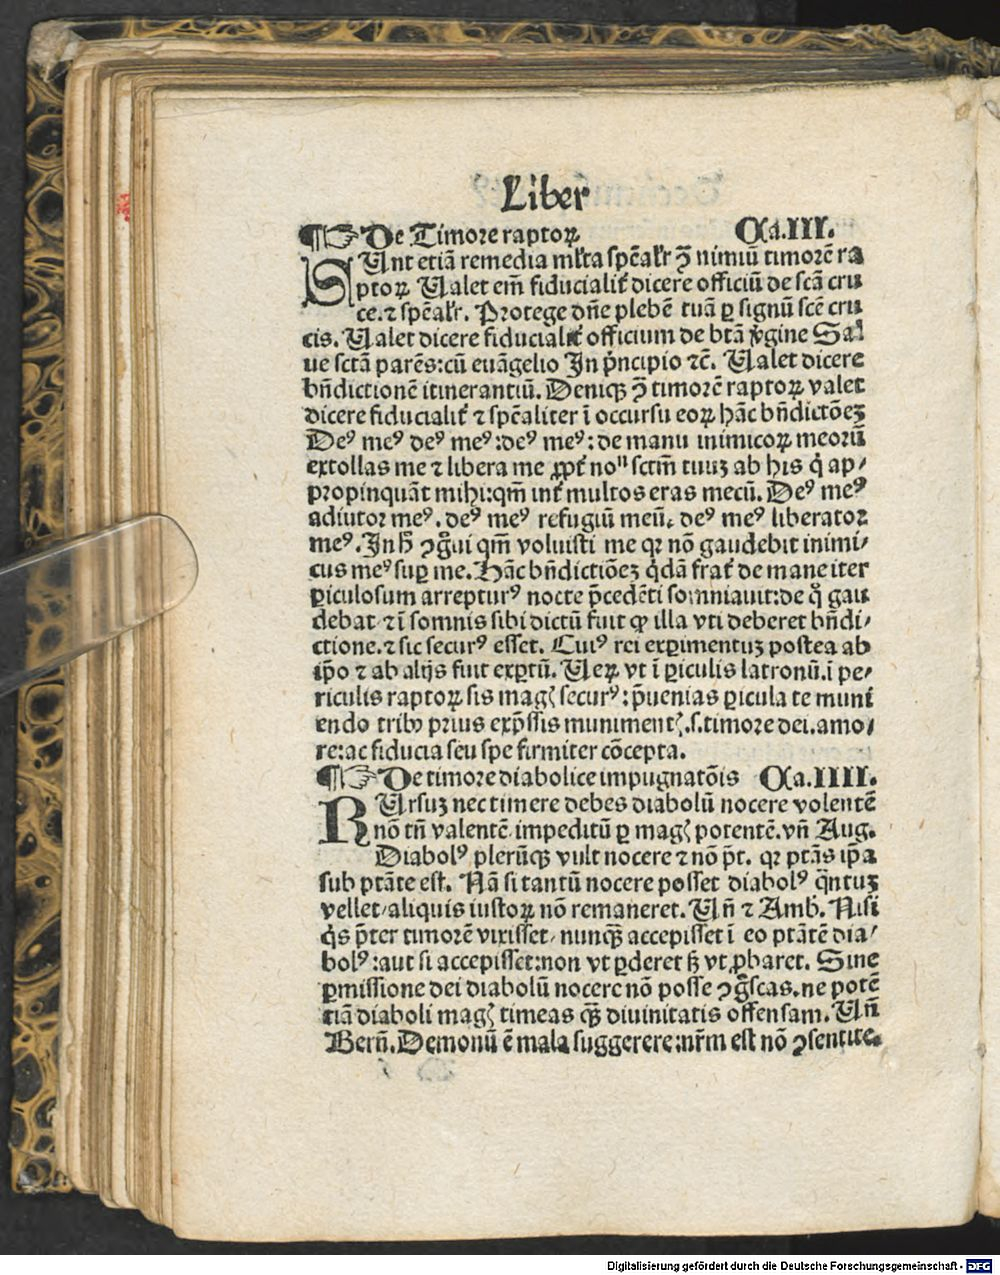 Liber
¶☞De Timore raptoꝝ Ca.III.
SUnt etiā remedia ml̕ta spēal̕r ꝯ̄ nimiū timorē ra
ptoꝝ Ualet em̄ fiducialit̕ dicere officiū de scā cru
ce.⁊ spēal̕r. Protege dn̄e plebē tuā ꝑ signū scē cru
cis. Ualet dicere fiducialit̕ officium de btā v̕gine Sal
ue sctā parēs:cū euāgelio In pͥncipio ⁊c̄. Ualet dicere
bn̄dictionē itinerantiū. Deniqꝫ ꝯ̄ timorē raptoꝝ valet
dicere fiducialit̕ ⁊ spēaliter ī occursu eoꝝ hāc bn̄dictōeꝫ
Deꝰ meꝰ deꝰ meꝰ:deꝰ meꝰ: de manu inimicoꝝ meorū
extollas me ⁊ libera me ꝓpt̕ noⁿ sctm̄ tuuꝫ ab his qͥ ap⸗
propinquāt mihi:qm̄ int̕ multos eras mecū. Deꝰ meꝰ
adiutor meꝰ. deꝰ meꝰ refugiū meū. deꝰ meꝰ liberator
meꝰ. In h̄ ꝯgͦui qm̄ voluisti me qꝛ nō gaudebit inimi⸗
cus meꝰ suꝑ me. Hāc bn̄dictiōeꝫ qͥdā frat̕ de mane iter
ꝑiculosum arrepturꝰ nocte p̄cedēti somniauit:de qͦ gau
debat ⁊ ī somnis sibi dictū fuit ꝙ illa vti deberet bn̄di⸗
ctione.⁊ sic securꝰ esset. Cuiꝰ rei exꝑimentuꝫ postea ab
ip̄o ⁊ ab alijs fuit exꝑtū. Ueꝝ vt ī ꝑiculis latronū.ī pe⸗
riculis raptoꝝ sis magꝭ securꝰ: p̄uenias ꝑicula te muni
endo tribꝰ prius exp̄ssis munimentꝭ.s.timore dei.amo⸗
re:ac fiducia seu spe firmiter cōcepta.
¶☞De timore diabolice impugnatōis Ca.IIII.
RUrsuꝫ nec timere debes diabolū nocere volentē
nō tn̄ valentē.impeditū ꝑ magꝭ potentē.vn̄ Aug.
Diabolꝰ plerūqꝫ vult nocere ⁊ nō pt̄. qꝛ ptās ip̄a
sub ptāte est. Nā si tantū nocere posset diabolꝰ qͣntuꝫ
vellet⸗aliquis iustoꝝ nō remaneret. Un̄ ⁊ Amb̄. Nisi
qͥs p̄ter timorē vixisset⸗ nunqͣꝫ accepisset ī eo ptātē dia⸗
bolꝰ:aut si accepisset:non vt ꝑderet sꝫ vt ꝓbaret. Sine
ꝑmissione dei diabolū nocere nō posse ꝯgͦscas.ne potē
tiā diaboli magꝭ timeas qͣꝫ diuinitatis offensam. Un̄
Bern̄. Demonū ē mala suggerere:nr̄m est nō ꝯsentire.
Digitalisierung gefördert durch die Deutsche Forschungsgemeinschaft - DFG